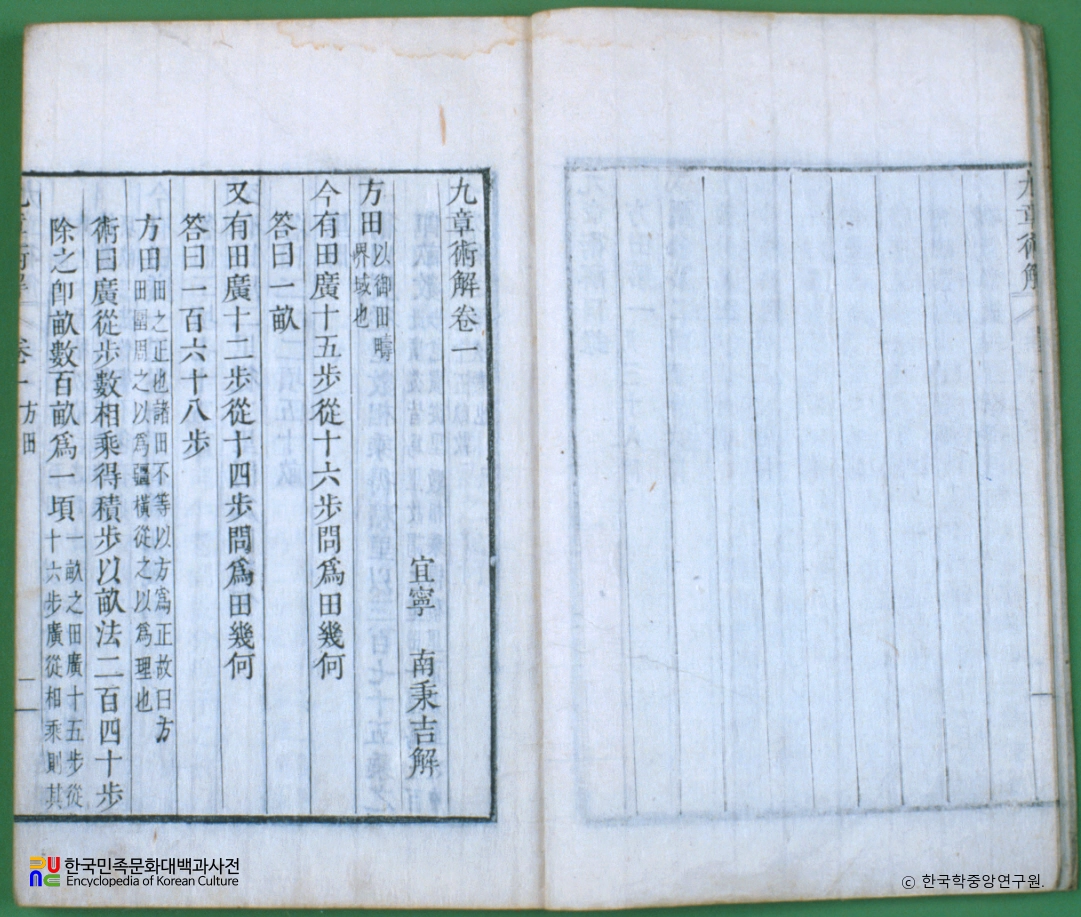 九章術解卷一
宜寧 南秉吉解
方田 以御田疇界域也
今有田廣十五步從十六步問爲田幾何
答曰一畝
又有田廣十二步從十四步問爲田幾何
答曰一百六十八步
方田 田之正也諸田不等以方爲正故曰方田圍周之以爲疆橫從之以爲理也
術曰廣從步數相乘得積步以畝法二百四十步
除之卽畝數百畝爲一頃 一畝之田廣十五步從十六步廣從相乘則其
九章術解 卷一 方田 一
九章術解
한국민족문화대백과사전
Encyclopedia of Korean Culture
ⓒ 한국학중앙연구원.